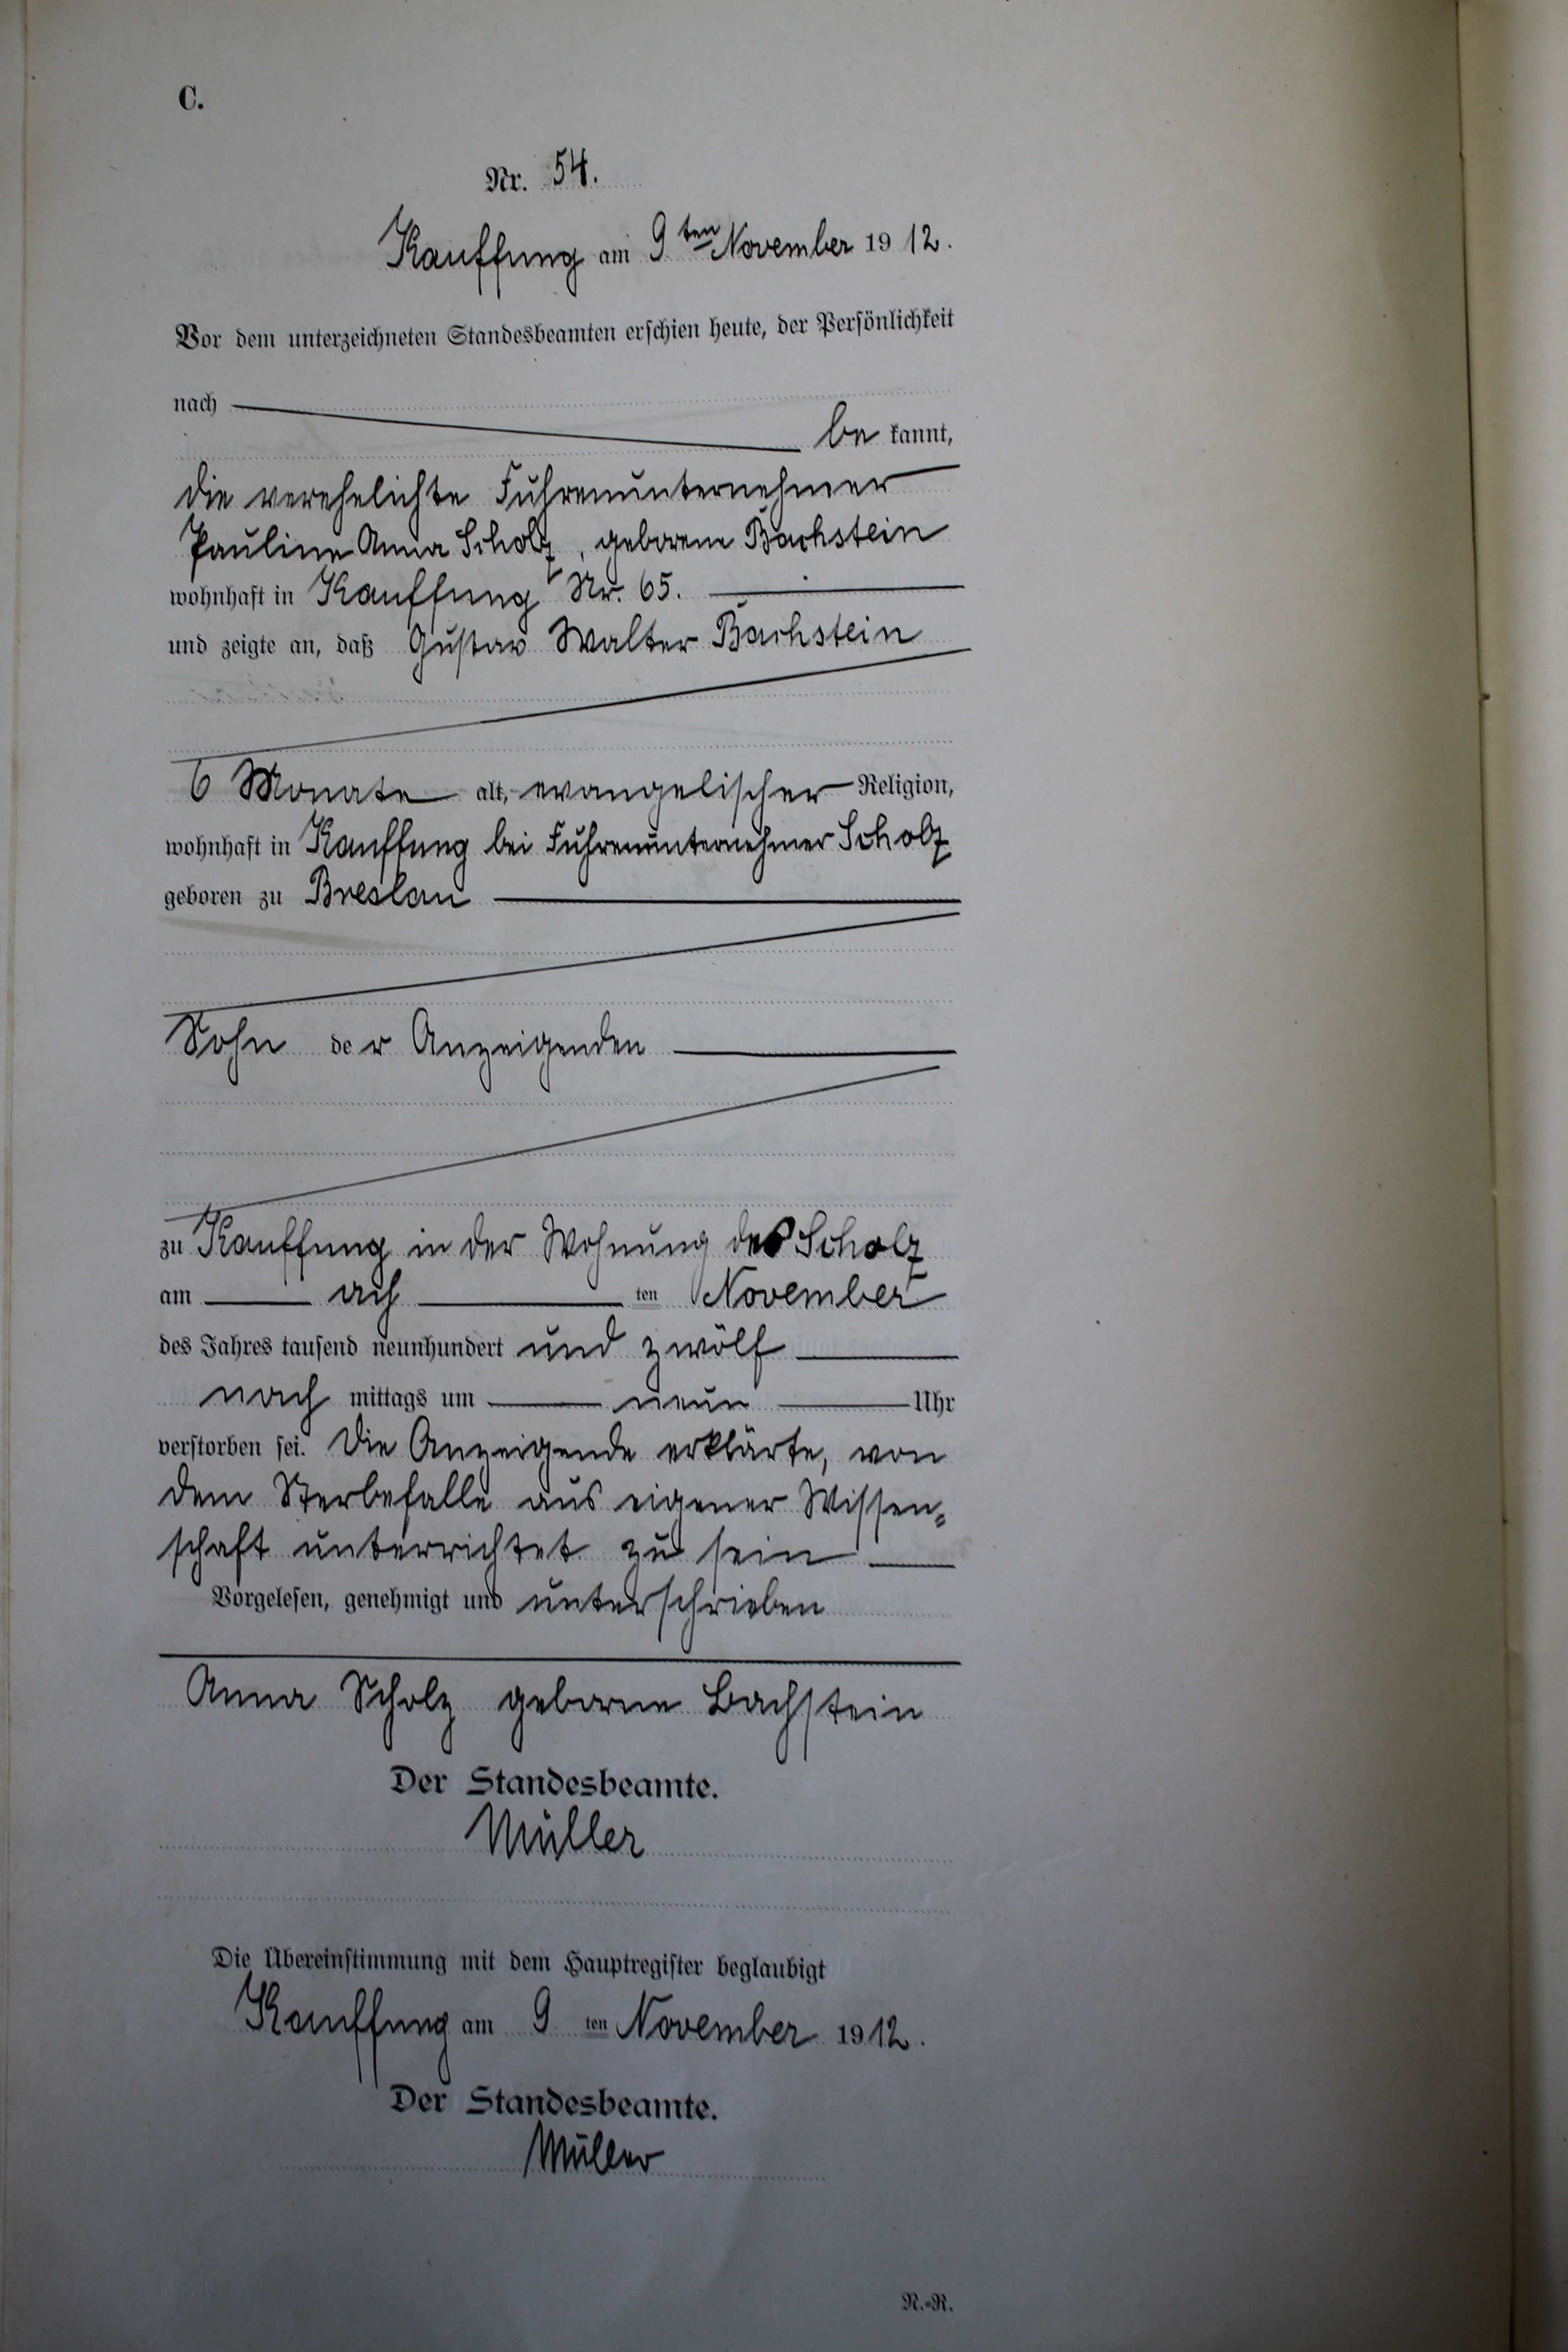 C.
Nr. 54.
Kauffung am 9ten November 1912.
Vor dem unterzeichneten Standesbeamten erschien heute, der Persönlichkeit
nach
be kannt,
die verehelichte Fuhrenunternehmer
Pauline Anna Scholz, geborene Bachstein
wohnhaft in Kauffung Nr. 65.
und zeigte an, daß Gustav Walter Bachstein
6 Monate alt, evangelischer Religion,
wohnhaft in Kauffung bei Fuhrenunternehmer Scholz
geboren zu Breslau
Sohn der Anzeigenden
zu Kauffung in der Wohnung des Scholz
am ach ten November
des Jahres tausend neunhundert und zwölf
nach mittags um neun Uhr
verstorben sei. Die Anzeigende erklärte, von
dem Sterbefalle aus eigener Wissen-
schaft unterrichtet zu sein
Vorgelesen, genehmigt und unterschrieben
Anna Scholz geborne Bachstein
Der Standesbeamte.
Müller
Die Übereinstimmung mit dem Hauptregister beglaubigt
Kauffung am 9 ten November 1912.
Der Standesbeamte.
Müller
N.-R.